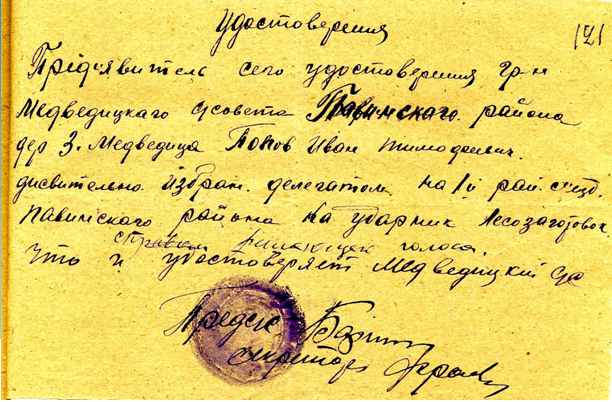 Удостоверения
121
Предиявитель сего удостоверения гр-н
Медведицкаго с/совета Павинскаго района
дер З. Медведица Попов Иван Тимофеевич.
дисвительно избран делегатом на 1й рай. с'езд.
Павинского района на ударник лесозаготовок
с правом решающего голоса.
что и удостоверяет Медведицкий с/с
Предс
секретарь